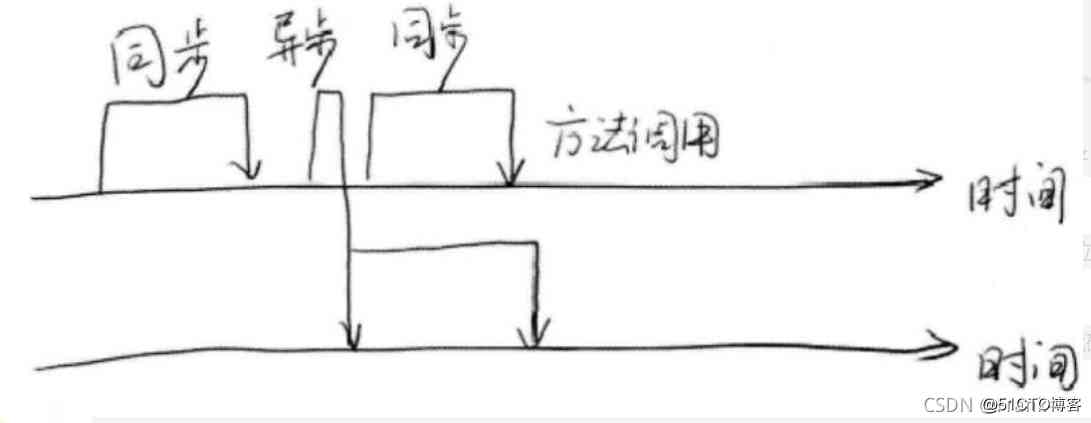 同步
异步
同步
方法调用
时间
时间
CSDN @51CTO博客